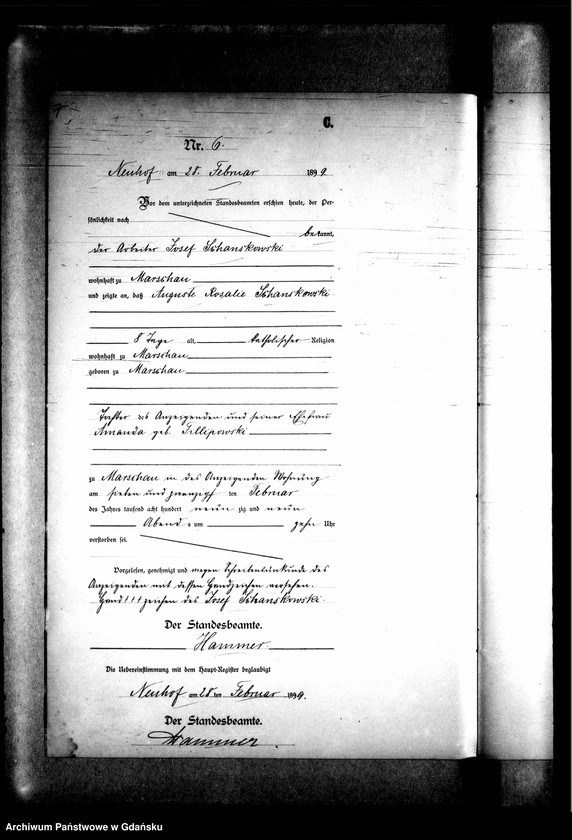 C.
Nr. 6.
Neuhof am 28. Februar 1899.
Vor dem unterzeichneten Standesbeamten erschien heute, der Per-
sönlichkeit nach
bekannt,
der Arbeiter Josef Schanskowski
wohnhaft zu Marschau
und zeigte an, daß Auguste Rosalie Schanskowski
8 Tage alt, katholischer Religion
wohnhaft zu Marschau
geboren zu Marschau
Tochter des Anzeigenden und seiner Ehefrau
Amanda geb. Fillipowski
zu Marschau in des Anzeigenden Wohnung
am sieben und zwanzigsten Februar
des Jahres tausend acht hundert neunzig und neun
Abends um zehn Uhr
verstorben sei.
Vorgelesen, genehmigt und wegen Schreibensunkunde des
Anzeigenden mit dessen Handzeichen versehen.
Hand ††† zeichen des Josef Schanskowski
Der Standesbeamte.
Hammer.
Die Uebereinstimmung mit dem Haupt-Register beglaubigt
Neuhof am 28ten Februar 1899.
Der Standesbeamte.
Hammer.
Archiwum Państwowe w Gdańsku